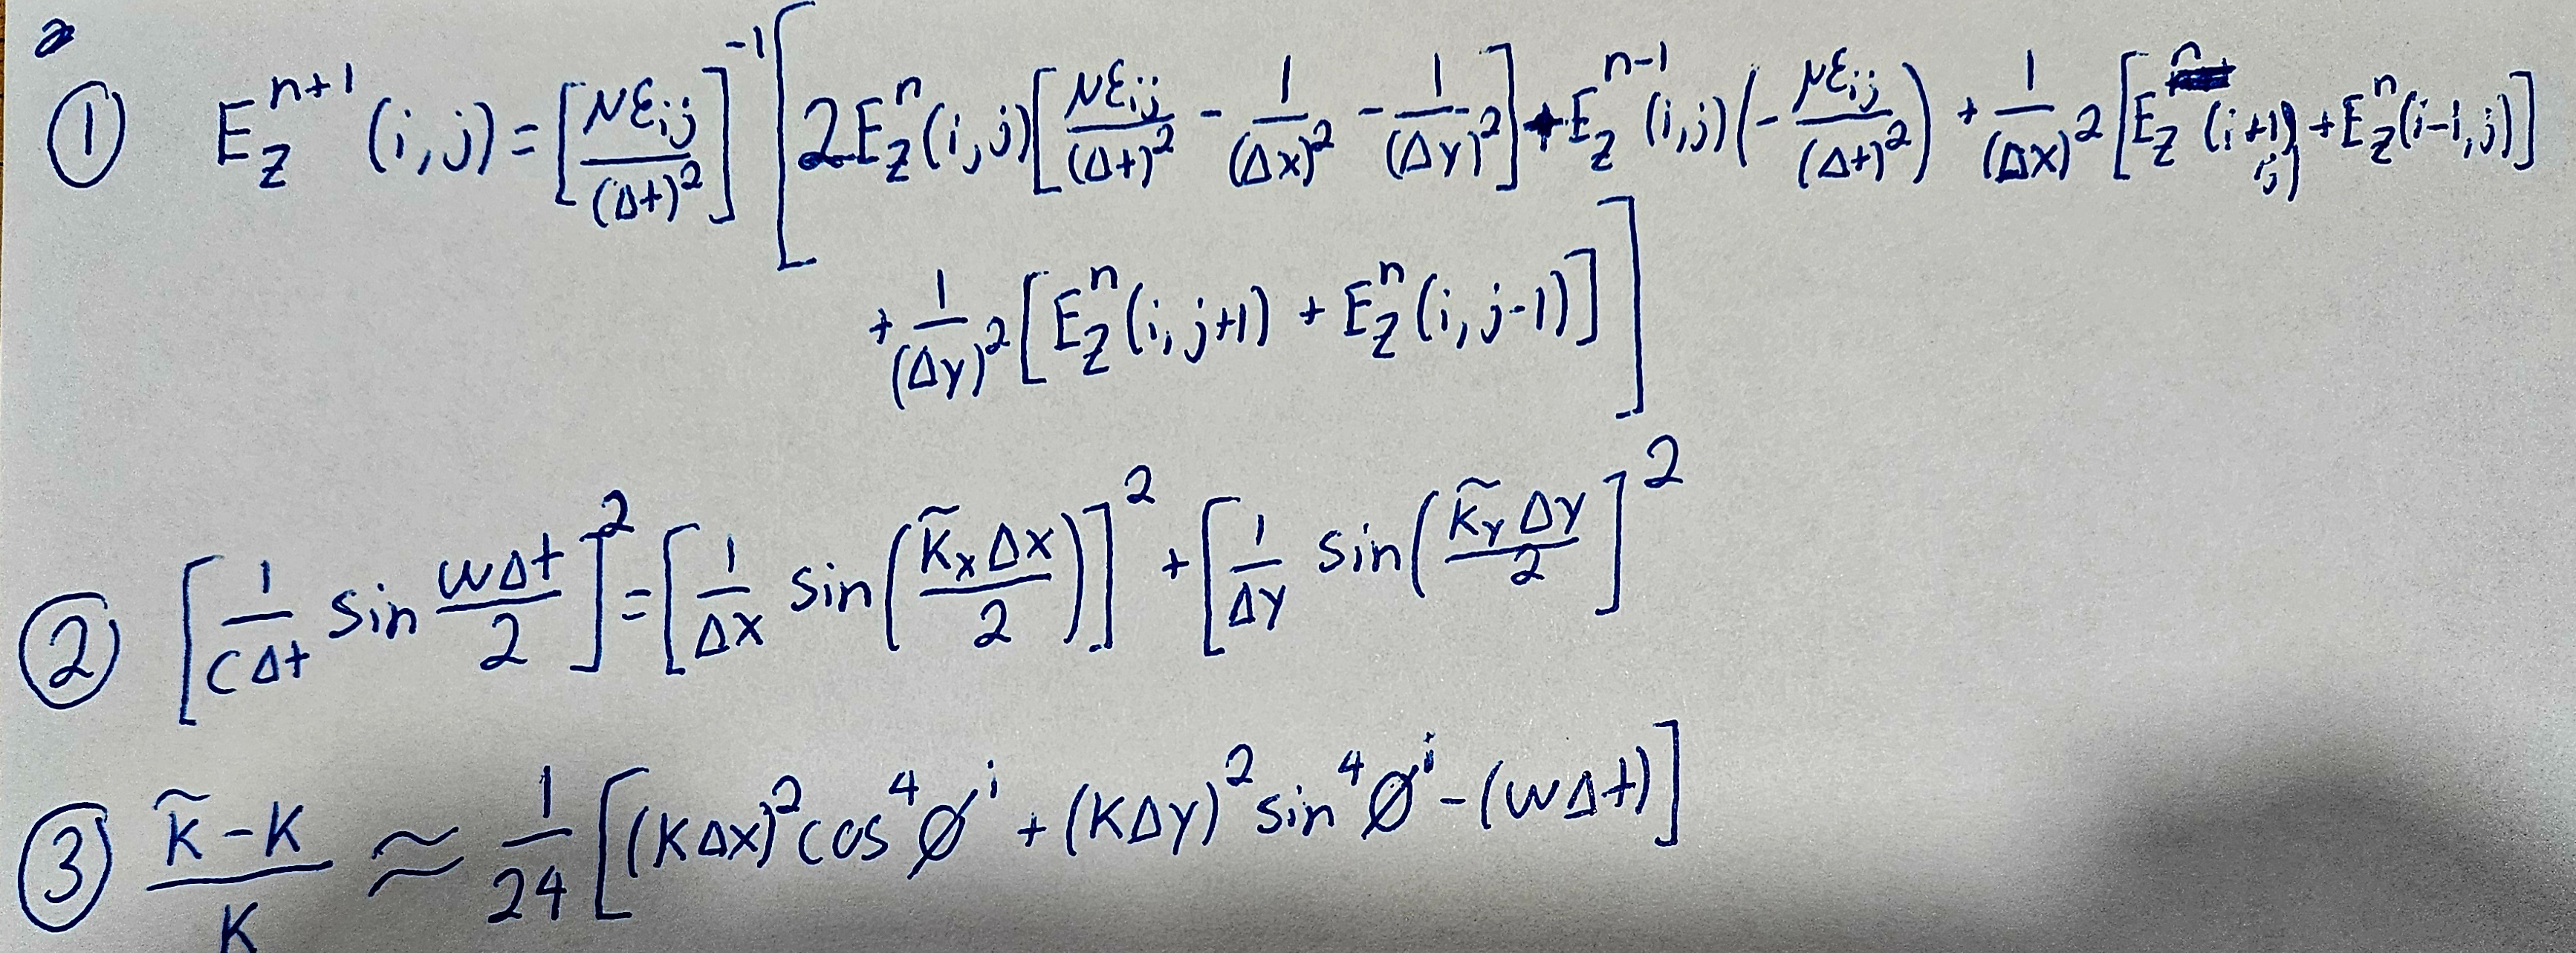 ① E_z^{n+1}(i,j) = [με_{ij}/(Δt)^2]^{-1} [2E_z^n(i,j)[με_{ij}/(Δt)^2 - 1/(Δx)^2 - 1/(Δy)^2] + E_z^{n-1}(i,j)(-με_{ij}/(Δt)^2) + 1/(Δx)^2 [E_z^n(i+1,j) + E_z^n(i-1,j)]
+ 1/(Δy)^2 [E_z^n(i,j+1) + E_z^n(i,j-1)]]
② [1/(cΔt) sin ωΔt/2]^2 = [1/Δx sin(k̃_xΔx/2)]^2 + [1/Δy sin(k̃_yΔy/2]^2
③ (k̃-k)/k ≈ 1/24 [(kΔx)^2 cos^4 ø^i + (kΔy)^2 sin^4 ø^i - (ωΔt)]